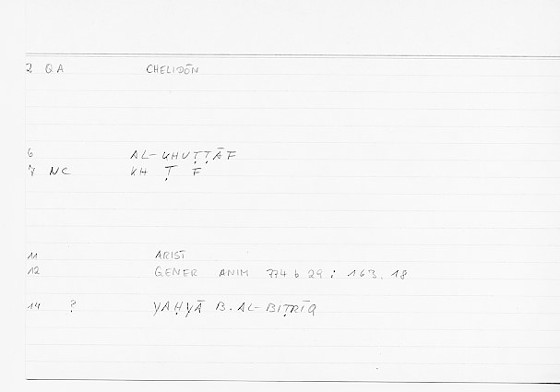 2 QA CHELIDŌN
6 AL-KHUṬṬĀF
7 NC KH Ṭ F
11 ARIST
12 GENER ANIM 774 b 29 ; 163.18
14 ? YAḤYĀ B. AL-BIṬRĪQ